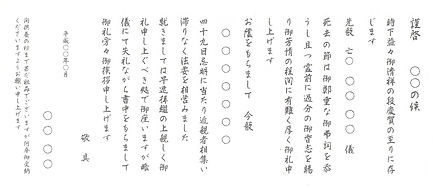 謹啓　○○の候
時下益々御清祥の段慶賀の至りに存
じます
先般　亡○　○○○　儀
死去の節は御鄭重な御弔詞を添
うし且つ霊前に過分の御香志を賜
り御芳情の程洵に有難く厚く御礼申
し上げます
お陰をもちまして　今般
○○○○○○
四十九日忌明に当たり近親者相集い
滞りなく法要を相営みました
就きましては早速拝趨の上親しく御
礼申し上ぐべき処で御座いますが略
儀にて失礼ながら書中をもちまして
御礼旁々御挨拶申し上げます
敬具
平成○○年○月
○○　○○
同操葬の印までに心ばかりの品
くださいますようお願い申し上げます